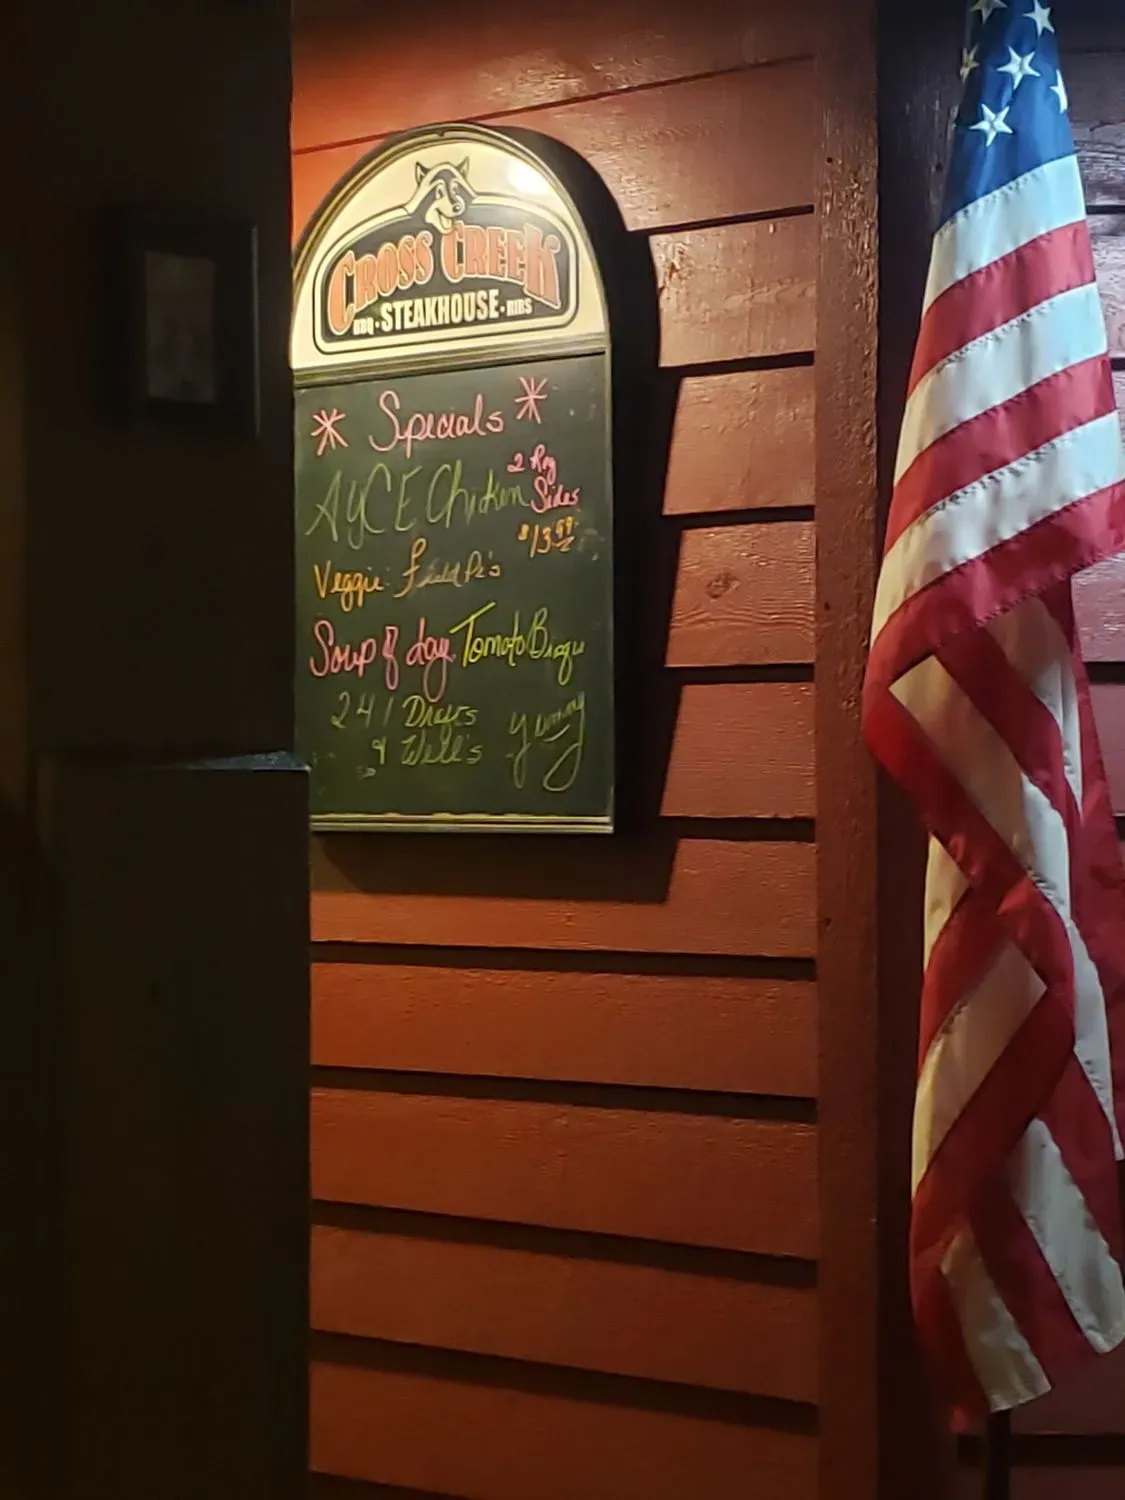 CROSS CREEK
BBQ · STEAKHOUSE · RIBS
* Specials *
AYCE Chicken 2 Reg Sides
$13.99
Veggie: Field Pe's
Soup of day Tomato Bisque
241 Draft's
& Well's yummy